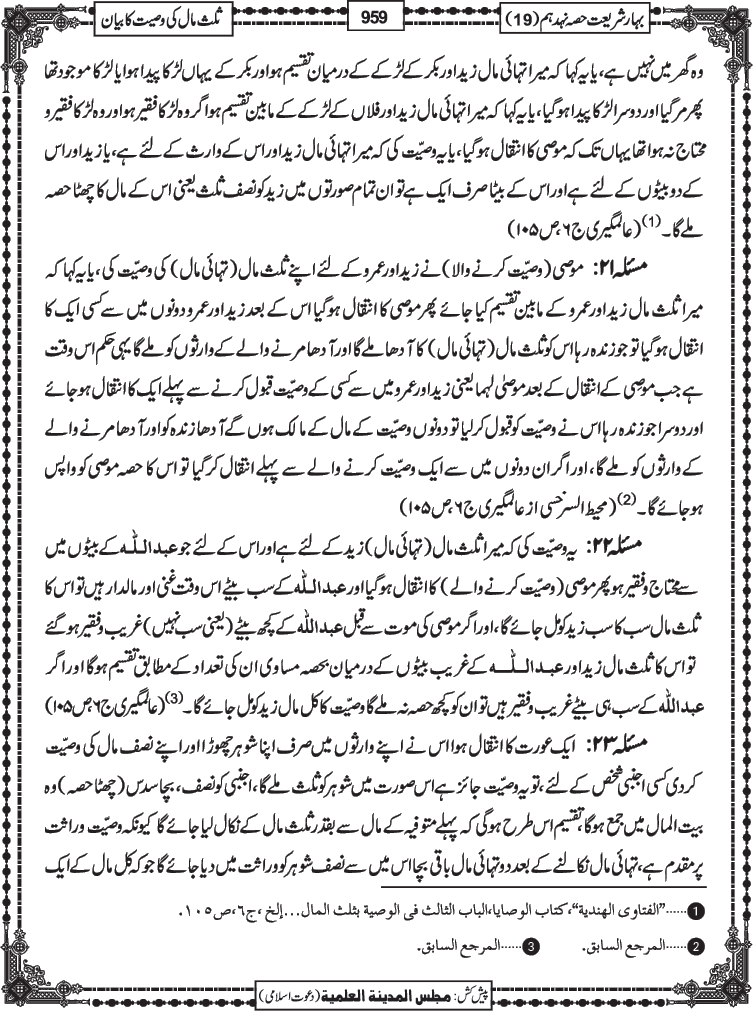 بہار شریعت حصہ نہدہم (19)
959
ثلث مال کی وصیت کا بیان
وہ گھر میں نہیں ہے، یا یہ کہا کہ میرا تہائی مال زید اور بکر کے لڑکے کے درمیان تقسیم ہو اور بکر کے یہاں لڑکا پیدا ہوا یا لڑکا موجود تھا
پھر مر گیا اور دوسرا لڑکا پیدا ہو گیا، یا یہ کہا کہ میرا تہائی مال زید اور فلاں کے لڑکے کے مابین تقسیم ہو اگر وہ لڑکا فقیر ہو اور وہ لڑکا فقیر و
محتاج نہ ہوا تھا یہاں تک کہ موصی کا انتقال ہو گیا، یا یہ وصیّت کی کہ میرا تہائی مال زید اور اس کے وارث کے لئے ہے، یا زید اور اس
کے دو بیٹوں کے لئے ہے اور اس کے بیٹا صرف ایک ہے تو ان تمام صورتوں میں زید کو نصف ثلث یعنی اس کے مال کا چھٹا حصہ
ملے گا۔(1) (عالمگیری ج۶،ص۱۰۵)
مسئلہ ۲۱: موصی (وصیّت کرنے والا) نے زید اور عمرو کے لئے اپنے ثلث مال (تہائی مال) کی وصیت کی، یا یہ کہا کہ
میرا ثلث مال زید اور عمرو کے مابین تقسیم کیا جائے پھر موصی کا انتقال ہو گیا اس کے بعد زید اور عمرو دونوں میں سے کسی ایک کا
انتقال ہو گیا تو جو زندہ رہا اس کو ثلث مال (تہائی مال) کا آدھا ملے گا اور آدھا مرنے والے کے وارثوں کو ملے گا یہی حکم اس وقت
ہے جب موصی کے انتقال کے بعد موصیٰ لہما یعنی زید اور عمرو میں سے کسی کے وصیّت قبول کرنے سے پہلے ایک کا انتقال ہو جائے
اور دوسرا جو زندہ رہا اس نے وصیّت کو قبول کر لیا تو دونوں وصیّت کے مال کے مالک ہوں گے آدھا زندہ کو اور آدھا مرنے والے
کے وارثوں کو ملے گا، اور اگر ان دونوں میں سے ایک وصیّت کرنے والے سے پہلے انتقال کر گیا تو اس کا حصہ موصی کو واپس
ہو جائے گا۔(2) (محیط السرخسی از عالمگیری ج۶،ص۱۰۵)
مسئلہ ۲۲: یہ وصیّت کی کہ میرا ثلث مال (تہائی مال) زید کے لئے ہے اور اس کے لئے جو عبداللہ کے بیٹوں میں
سے محتاج و فقیر ہو پھر موصی (وصیّت کرنے والے) کا انتقال ہو گیا اور عبداللہ کے سب بیٹے اس وقت غنی اور مالدار ہیں تو اس کا
ثلث مال سب کا سب زید کو مل جائے گا، اور اگر موصی کی موت سے قبل عبداللہ کے کچھ بیٹے (یعنی سب نہیں) غریب و فقیر ہو گئے
تو اس کا ثلث مال زید اور عبداللہ کے غریب بیٹوں کے درمیان بحصہ مساوی ان کی تعداد کے مطابق تقسیم ہوگا اور اگر
عبداللہ کے سب ہی بیٹے غریب و فقیر ہیں تو ان کو کچھ حصہ نہ ملے گا وصیّت کا کل مال زید کو مل جائے گا۔(3) (عالمگیری ج۶،ص۱۰۵)
مسئلہ ۲۳: ایک عورت کا انتقال ہوا اس نے اپنے وارثوں میں صرف اپنا شوہر چھوڑا اور اپنے نصف مال کی وصیّت
کر دی کسی اجنبی شخص کے لئے، تو یہ وصیّت جائز ہے اس صورت میں شوہر کو ثلث ملے گا، اجنبی کو نصف، بچا سدس (چھٹا حصہ) وہ
بیت المال میں جمع ہوگا، تقسیم اس طرح ہوگی کہ پہلے متوفیہ کے مال سے بقدر ثلث مال کے نکال لیا جائے گا کیونکہ وصیّت وراثت
پر مقدم ہے، تہائی مال نکالنے کے بعد دو تہائی مال باقی بچا اس میں سے نصف شوہر کو وراثت میں دیا جائے گا جو کہ کل مال کے ایک
1......”الفتاوی الھندیة“، کتاب الوصایا، الباب الثالث فی الوصیة بثلث المال...إلخ، ج۶، ص۱۰۵.
2......المرجع السابق. 3......المرجع السابق.
پیش کش: مجلس المدینة العلمیة (دعوت اسلامی)